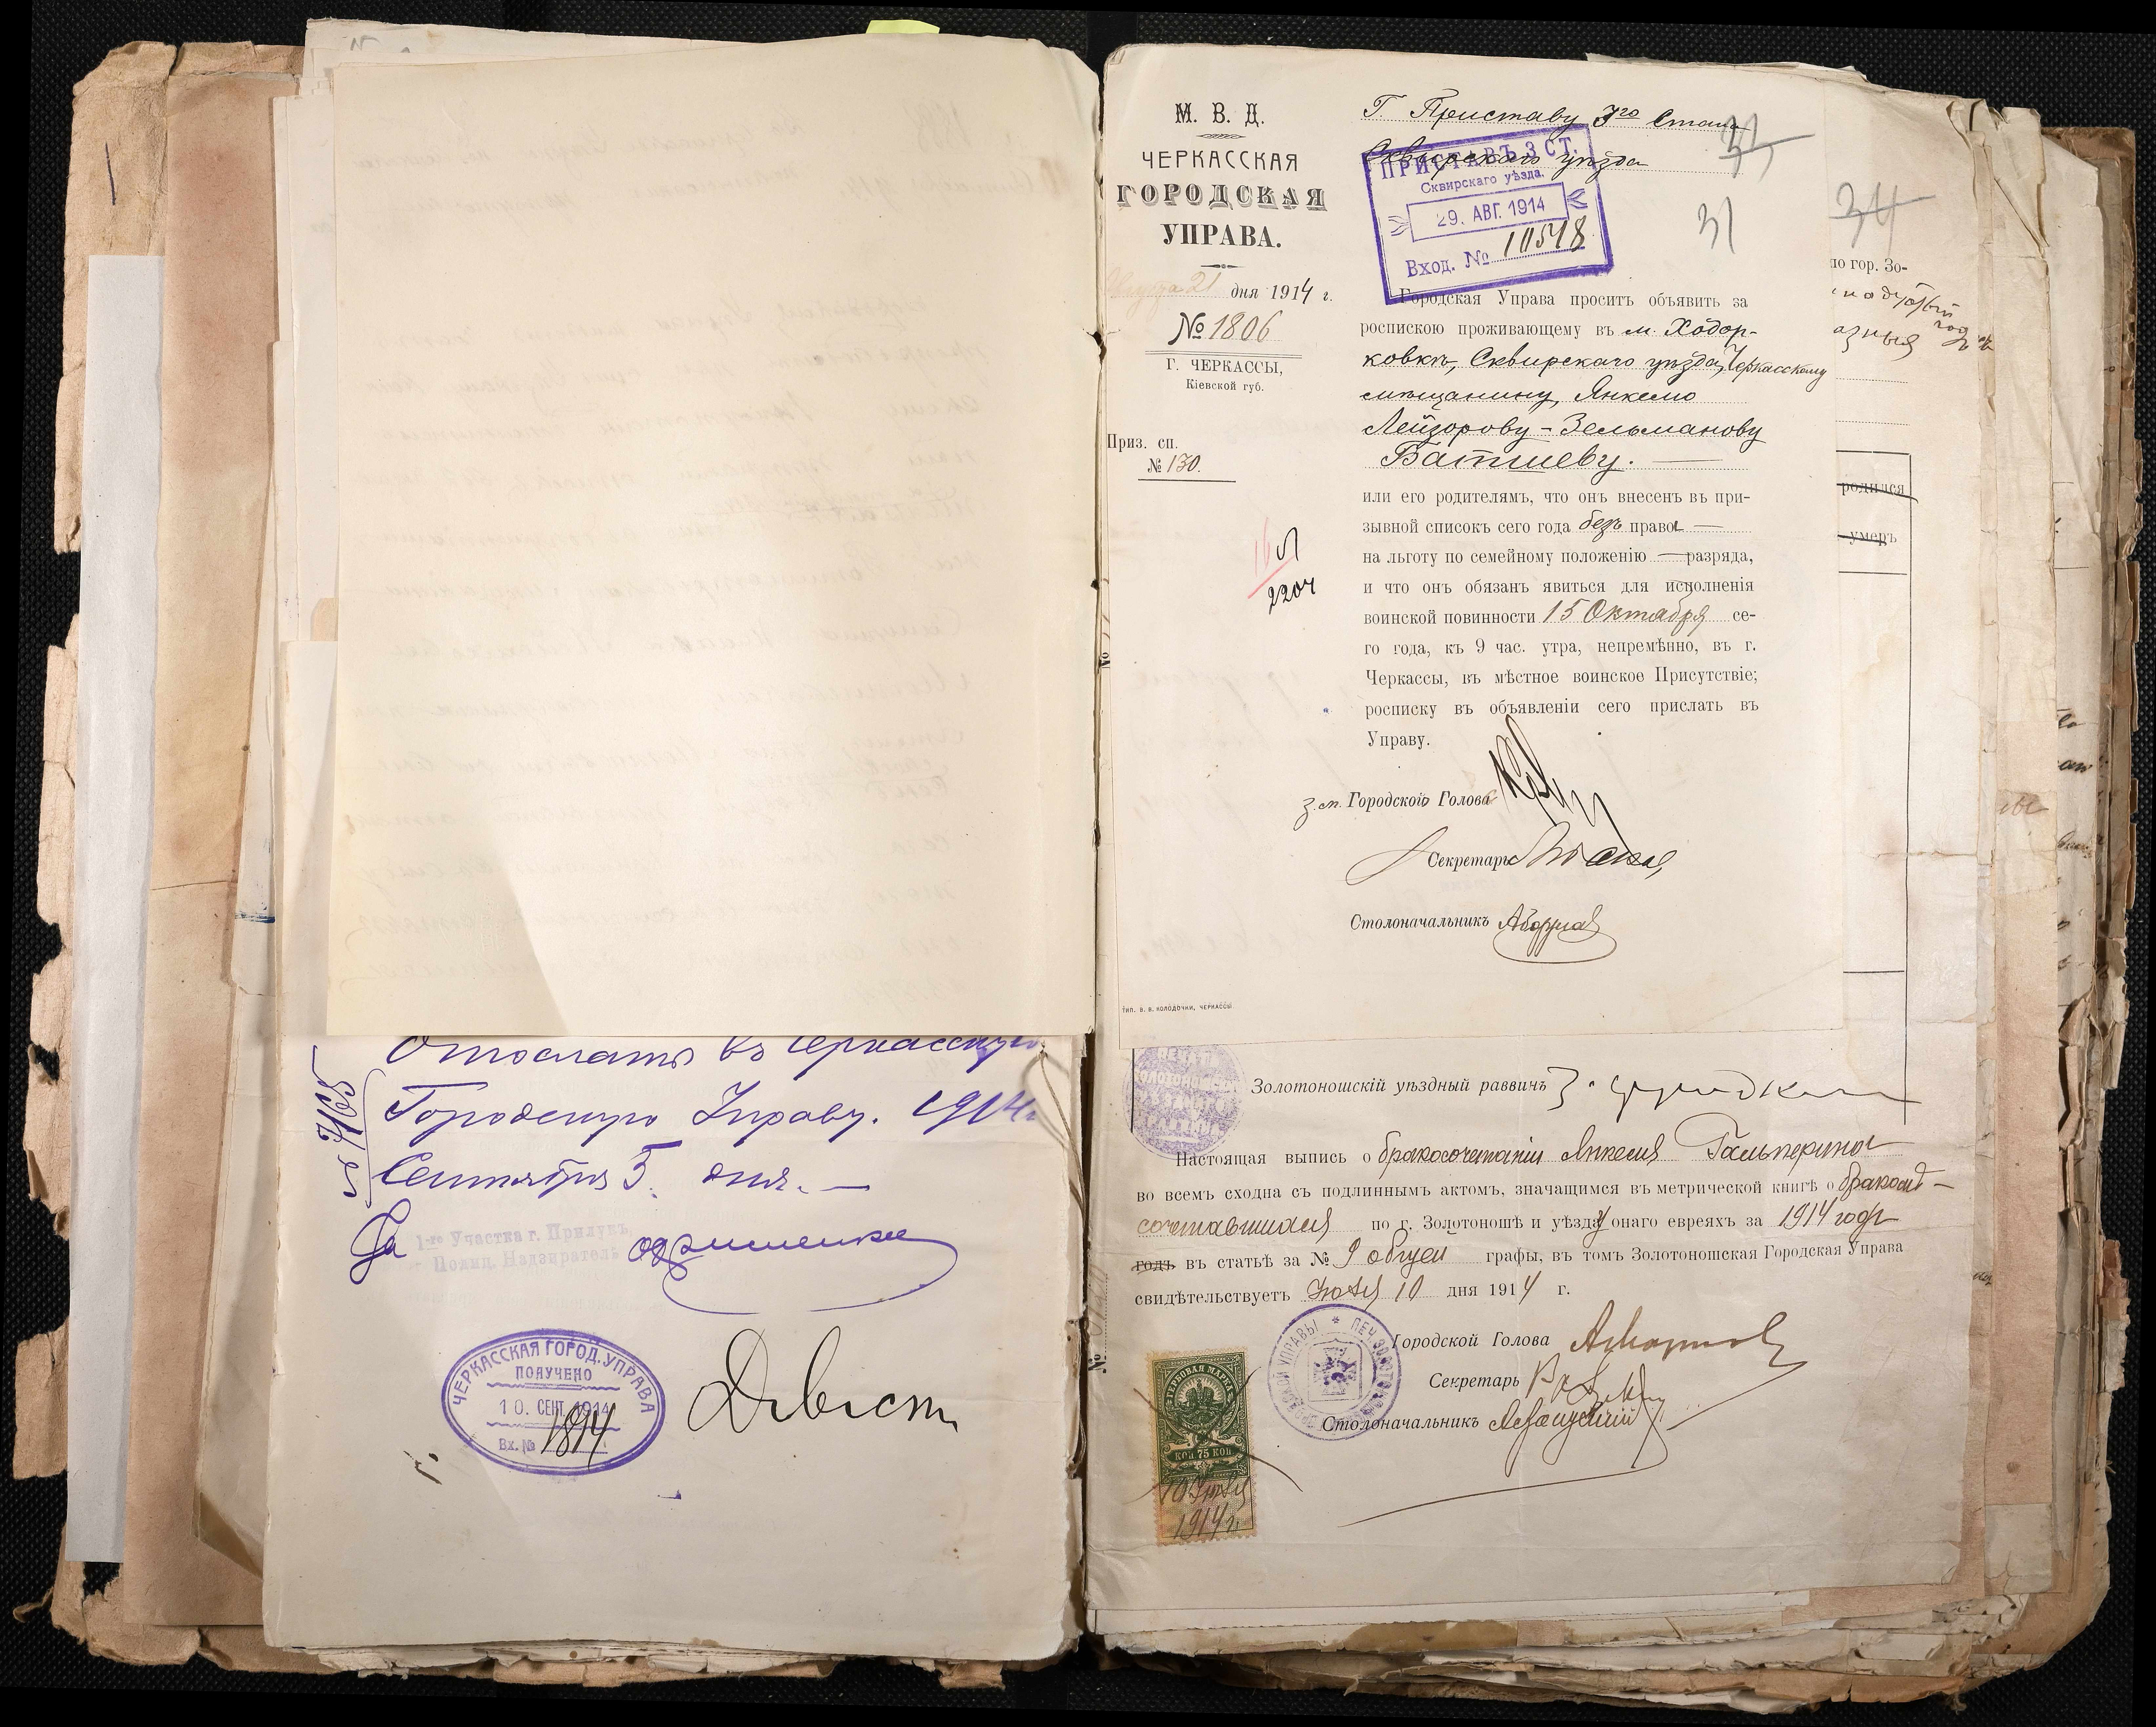 Отослать въ Черкасскую
Городскую Управу. 1914 г.
Сентября 5 дня.
За
1-го Участка г. Прилукъ
Полиц. Надзиратель
ЧЕРКАССКАЯ ГОРОД. УПРАВА
ПОЛУЧЕНО
10. СЕНТ. 1914
Вх. № 1814
М. В. Д.
ЧЕРКАССКАЯ
ГОРОДСКАЯ
УПРАВА.
Августа 21 дня 1914 г.
№ 1806
Г. ЧЕРКАССЫ,
Кіевской губ.
Приз. сп.
№ 130.
16
2204
Г. Приставу 3го Стана
Сквирскаго уѣзда
ПРИСТАВЪ 3 СТ.
Сквирскаго уѣзда.
29. АВГ. 1914
Вход. № 10548
33
31
34
Городская Управа проситъ объявить за
роспискою проживающему въ м. Ходор-
ковкѣ, Сквирскаго уѣзда, Черкасскому
мѣщанину, Янкелю
Лейзорову-Зельманову
Батиеву.
или его родителямъ, что онъ внесенъ въ при-
зывной списокъ сего года безъ права
на льготу по семейному положенію — разряда,
и что онъ обязанъ явиться для исполненія
воинской повинности 15 Октября се-
го года, къ 9 час. утра, непремѣнно, въ г.
Черкассы, въ мѣстное воинское Присутствіе;
росписку въ объявленіи сего прислать въ
Управу.
з.м. Городского Голова
Секретарь
Столоначальникъ
ТИП. В. В. КОЛОДОЧКИ, ЧЕРКАССЫ
по гор. Зо-
родился
умеръ
Золотоношскій уѣздный раввинъ
Настоящая выпись о бракосочетаніи Янкеля Гальперина
во всемъ сходна съ подлиннымъ актомъ, значащимся въ метрической книгѣ о бракосо-
четавшихся по г. Золотоношѣ и уѣзду онаго евреяхъ за 1914 годъ
годъ въ статьѣ за № 9 общей графы, въ томъ Золотоношская Городская Управа
свидѣтельствуетъ Іюля 10 дня 1914 г.
Городской Голова
Секретарь
Столоначальникъ
ГЕРБОВАЯ МАРКА
КОП 75 КОП
10 Іюля
1914 г.